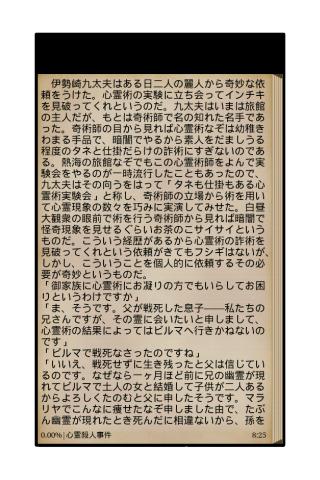 伊勢崎九太夫はある日二人の麗人から奇妙な依
頼をうけた。心霊術の実験に立ち会ってインチキ
を見破ってくれというのだ。九太夫はいまは旅館
の主人だが、もとは奇術師で名の知れた名手であ
った。奇術師の目から見れば心霊術なぞは幼稚き
わまる手品で、暗闇でやるから素人をだましうる
程度のタネと仕掛だらけの詐術にすぎないのであ
る。熱海の旅館なぞでもこの心霊術師をよんで実
験会をやるのが一時流行したこともあったので、
九太夫はその向うをはって「タネも仕掛もある心
霊術実験会」と称し、奇術師の立場から術を用い
て心霊現象の数々を巧みに実演してみせた。白昼
大観衆の眼前で術を行う奇術師から見れば暗闇で
怪奇現象を見せるぐらいお茶のこサイサイという
ものだ。こういう経歴があるから心霊術の詐術を
見破ってくれという依頼がきてもフシギはないが、
しかし、こういうことを個人的に依頼するその必
要が奇妙というものだ。
「御家族に心霊術にお凝りの方でもいらしてお困
りというわけですか」
「ま、そうです。父が戦死した息子――私たちの
兄さんですが、その霊に会いたいと申しまして、
心霊術の結果によってはビルマへ行きかねないの
です」
「ビルマで戦死なさったのですね」
「いいえ、戦死せずに生き残ったと父は信じてい
るのです。なぜなら一ヶ月ほど前に兄の幽霊が現
れてビルマで土人の女と結婚して子供が二人ある
からよろしくたのむと父に申したそうです。マラ
リヤでこんなに痩せたなぞ申しました由で、たぶ
ん幽霊が現れたとき死んだに相違ないから、孫を
0.00% | 心霊殺人事件
8:25